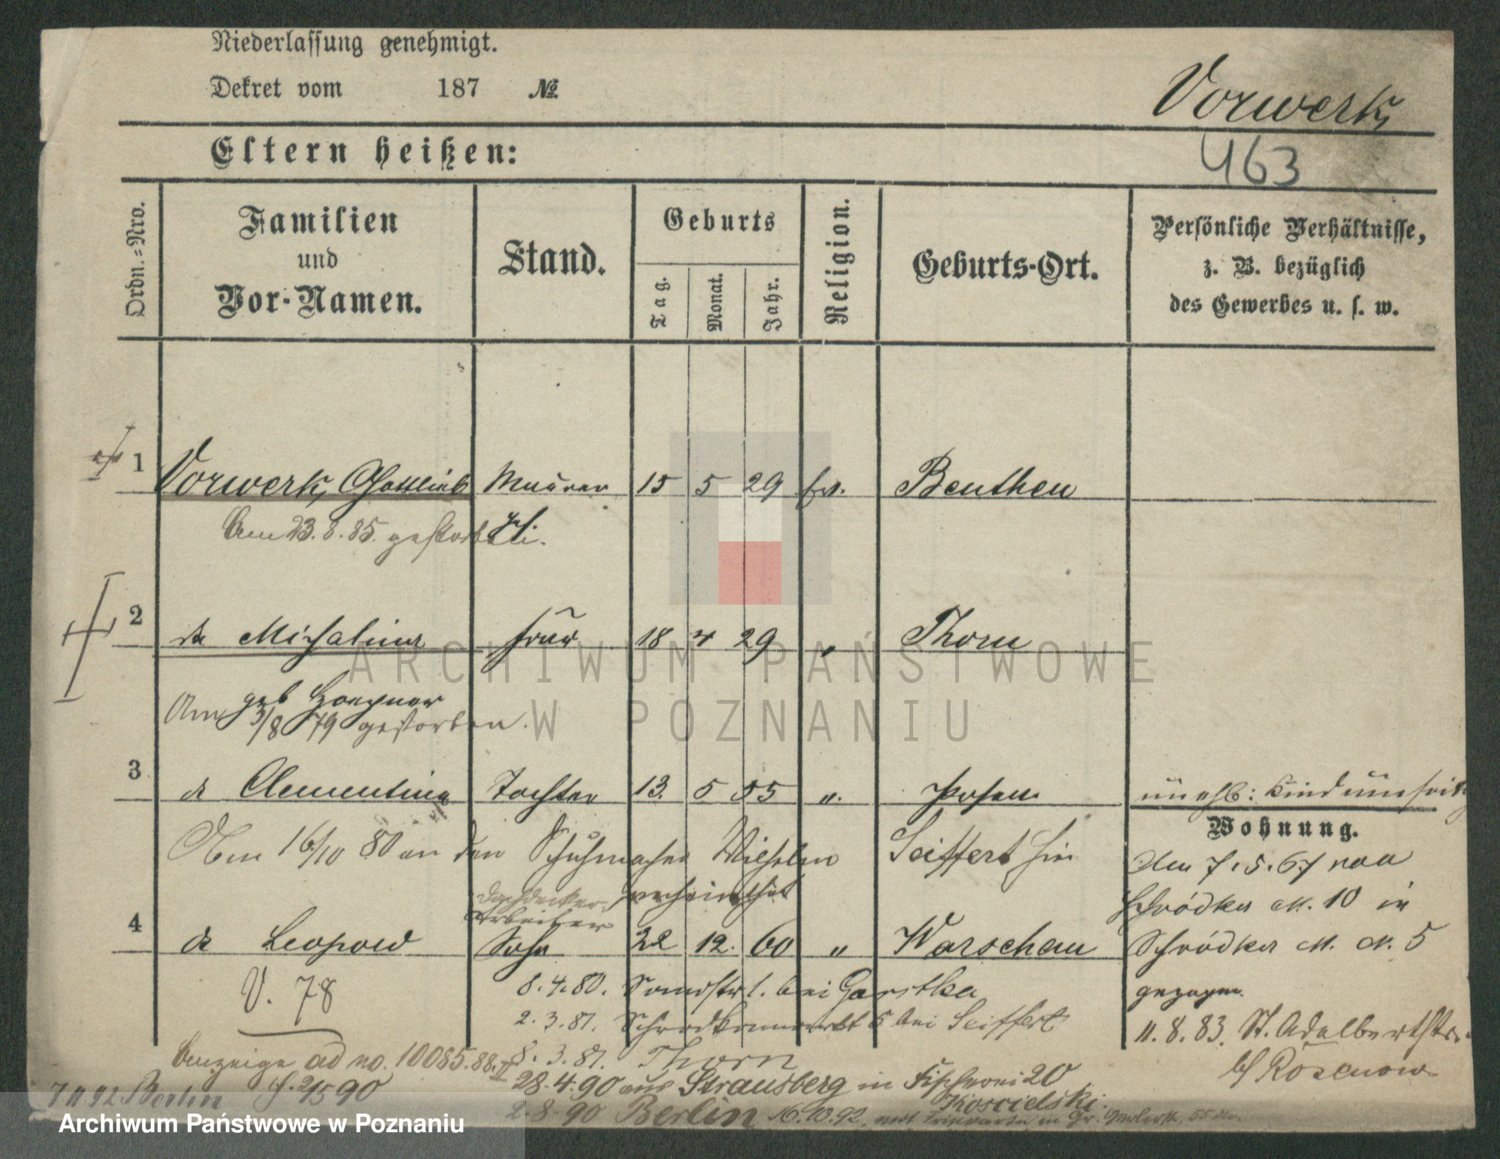 Niederlassung genehmigt.
Dekret vom 187 №
Vorwerk
463
Eltern heißen:
Ordn.-Nro.
Familien
und
Vor-Namen.
Stand.
Geburts
Tag.
Monat.
Jahr.
Religion.
Geburts-Ort.
Persönliche Verhältnisse,
z. B. bezüglich
des Gewerbes u. s. w.
1 Vorwerk, Gottlieb Maurer 15 5 29 ev. Beuthen
Am 23.8.85. gestorben.
2 do Michalina Frau 18 4 29 " Thorn
geb Hoepner
Am 3/8 79 gestorben.
3 do Clementine Tochter 13. 5 55 ". Posen
Am 16/10 80 an den Schuhmacher Wilhelm Seiffert hier
verheirathet
Wohnung.
Am 7.5.67 von
Schrödka M. 10 in
Schródka M. N. 5
gezogen
Dachdecker
Arbeiter
4 do Leopold Sohn 22 12. 60 " Warschau
V. 78
8.4.80. bei Garstka
2.3.81. Schrodkamarkt 5 bei Seiffert
11.8.83. St. Adalbertstr.
b/ Rosenow
Anzeige ad no. 10085.88.
8.3.81. Thorn
28.4.90 aus Strausberg in Fischerei 20
Koscielski.
7 11 92 Berlin
2-8-90 Berlin 16.10.92.
ARCHIWUM PAŃSTWOWE
W POZNANIU
Archiwum Państwowe w Poznaniu